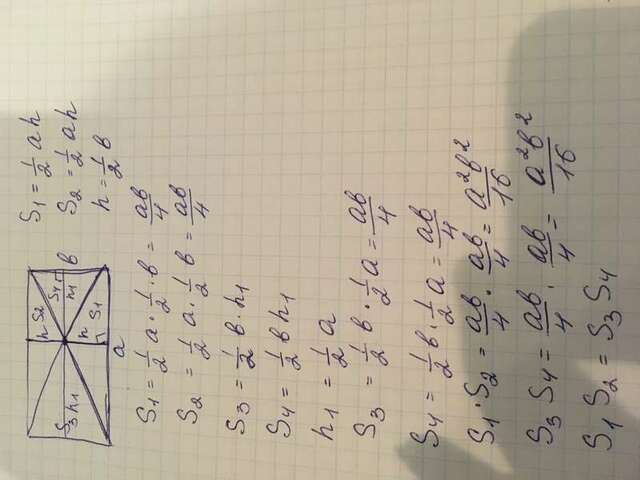 h S2
S4
S3 h1
h
h1
в
S1
a
S1 = 1/2 ah
S2 = 1/2 ah
h = 1/2 в
S1 = 1/2 a · 1/2 · в = aв/4
S2 = 1/2 a · 1/2 в = aв/4
S3 = 1/2 в · h1
S4 = 1/2 в h1
h1 = 1/2 a
S3 = 1/2 в · 1/2 a = aв/4
S4 = 1/2 в · 1/2 a = aв/4
S1 · S2 = aв/4 · aв/4 = a²в²/16
S3 S4 = aв/4 · aв/4 = a²в²/16
S1 S2 = S3 S4